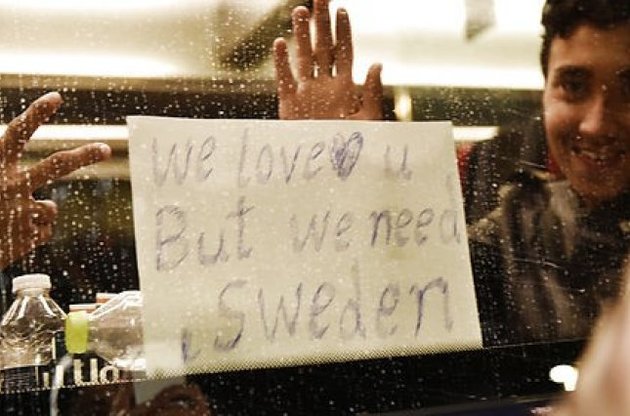 We love u
But we need
Sweden